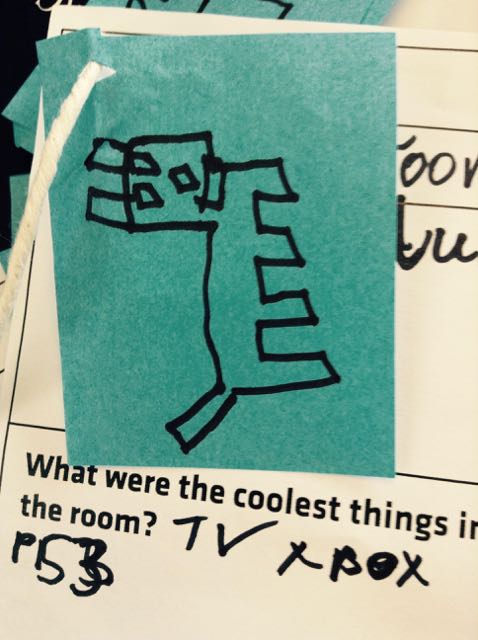 What were the coolest things in
the room? TV XBOX
PS3